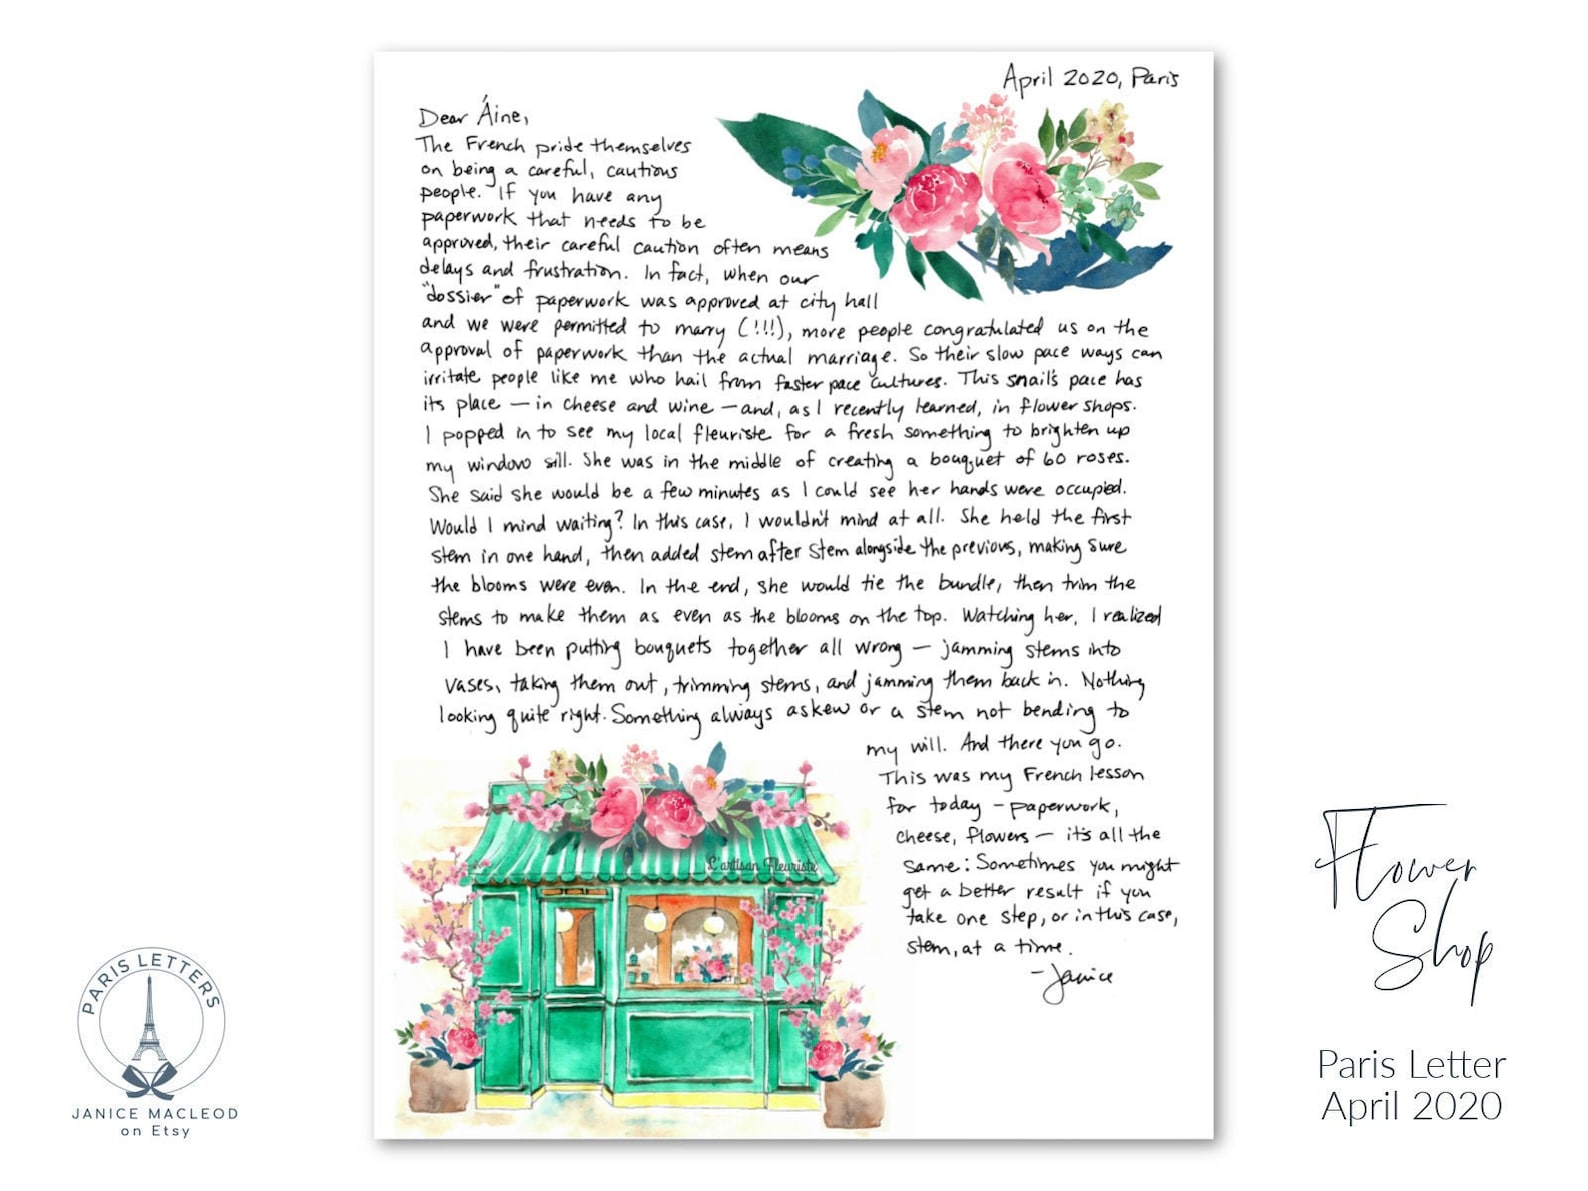 April 2020, Paris
Dear Áine,
The French pride themselves
on being a careful, cautious
people. If you have any
paperwork that needs to be
approved, their careful caution often means
delays and frustration. In fact, when our
"dossier" of paperwork was approved at city hall
and we were permitted to marry (!!!), more people congratulated us on the
approval of paperwork than the actual marriage. So their slow pace ways can
irritate people like me who hail from faster pace cultures. This snail's pace has
its place — in cheese and wine — and, as I recently learned, in flower shops.
I popped in to see my local fleuriste for a fresh something to brighten up
my window sill. She was in the middle of creating a bouquet of 60 roses.
She said she would be a few minutes as I could see her hands were occupied.
Would I mind waiting? In this case, I wouldn't mind at all. She held the first
stem in one hand, then added stem after stem alongside the previous, making sure
the blooms were even. In the end, she would tie the bundle, then trim the
stems to make them as even as the blooms on the top. Watching her, I realized
I have been putting bouquets together all wrong — jamming stems into
vases, taking them out, trimming stems, and jamming them back in. Nothing
looking quite right. Something always askew or a stem not bending to
my will. And there you go.
This was my French lesson
for today - paperwork,
cheese, flowers — it's all the
same: Sometimes you might
get a better result if you
take one step, or in this case,
stem, at a time.
- Janice
L'artisan Fleuriste
PARIS LETTERS
JANICE MACLEOD
on Etsy
Flower
Shop
Paris Letter
April 2020